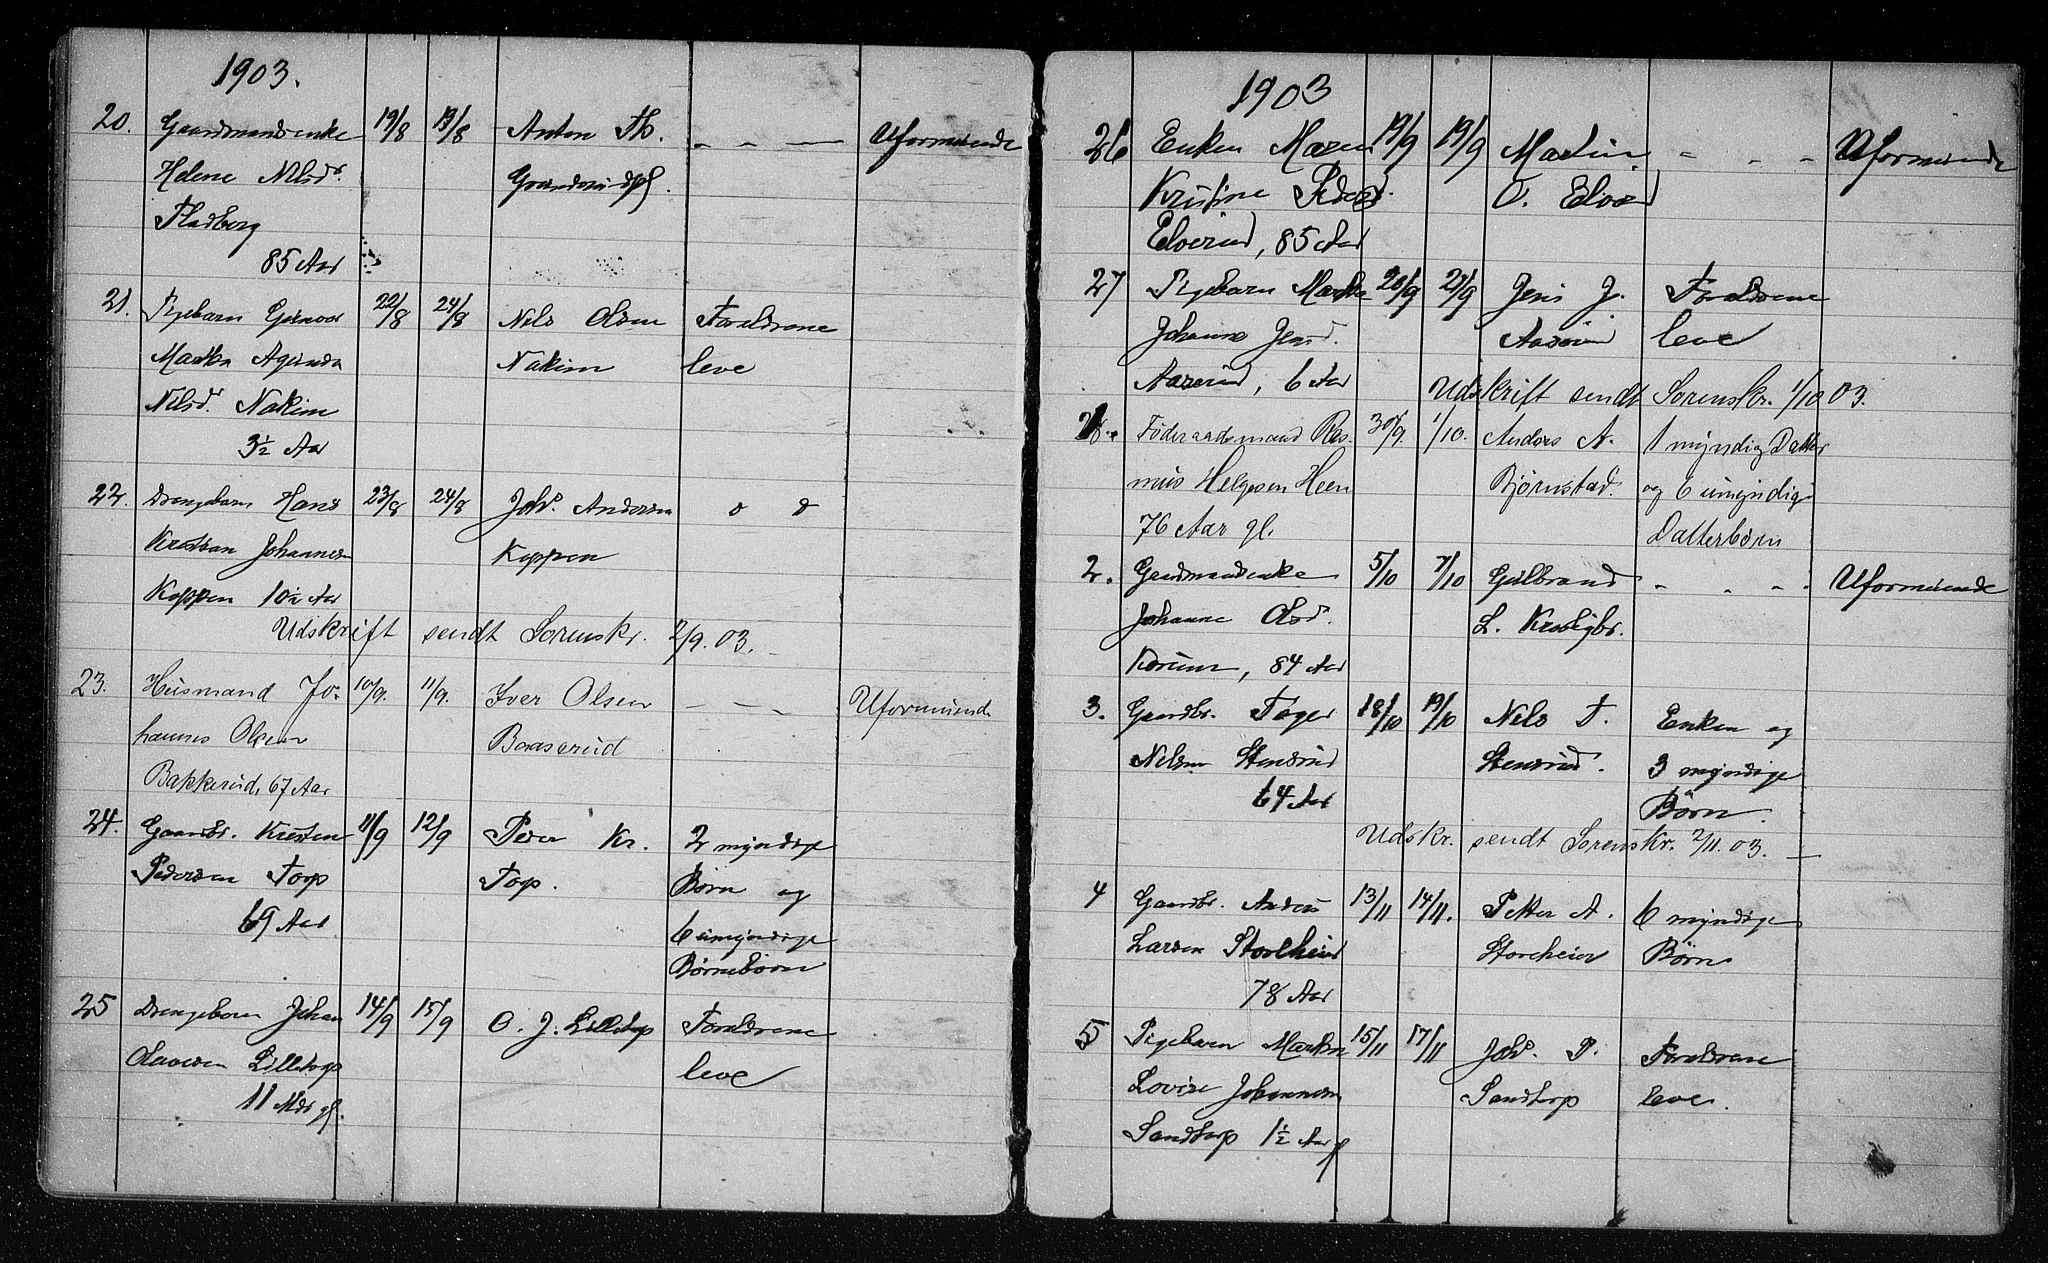 1903.
20. Gaardmandsenke 19/8 19/8 Anton Th. - - - Uformuende
Helene Nilsdr. Grandsrudspl.
Fladberg
85 Aar
21. Pigebarn Gunvor 22/8 24/8 Nils Olsen Forældrene
Martha Agunda Nakim leve
Nilsd. Nakim
3½ Aar
22. Drengebarn Hans 23/8 24/8 Johs. Andersen
Kristian Johannesen Koppen
Koppen 10½ Aar
Udskrift sendt Sorenskr. 2/9.03.
23. Husmand Jo- 10/9. 11/9. Iver Olsen - - - Uformuend.
hannes Olsen Baaserud
Bakkerud, 67 Aar
24. Gaardbr. Kristen 11/9 12/9 Peder Kr. 2 myndige
Pedersen Torp Torp. Børn og
69 Aar 6 umyndige
Børnebørn
25 Drengebarn Johan 14/9 15/9 O. J. Lilletorp Forældrene
Olavsen Lilletorp leve
11 Mdr gl.
1903
26 Enken Maren 19/9 19/9 Martin - - - Uformuende
Kristine Pedersd. O. Elvrud
Elverud, 85 Aar
27 Pigebarn Martha 20/9 21/9 Jens J. Forældrene
Johanne Jensd. Aaserud leve
Aaserud, 6 Aar
Udskrift sendt Sorenskr. 1/10 03.
Føderaadsmand Ras- 30/9. 1/10. Anders A. 1 myndig Datter
mus Helgesen Heen Bjørnstad. og 6 umyndige
76 Aar gl. Datterbørn
2. Gaardmandsenke 5/10 7/10 Gulbrand - - - Uformuende
Johanne Olsd. L.
84 Aar
3. Gaardbr. Tøger 18/10 19/10 Nils T. Enken og
Nelsen Stensrud Stensrud. 3 myndige
64 Aar Børn.
Udskr. sendt Sorenskr. 2/11.03. —
4 Gaardbr. Anders 13/11 14/11. Petter A. 6 myndige
Larsen Storeheier Storeheier Børn
78 Aar
5 Pigebarn Martha 15/11 17/11 Johs. P. Forældrene
Lovise Johannesen Sandtorp leve.
Sandtorp 1½ Aar gl